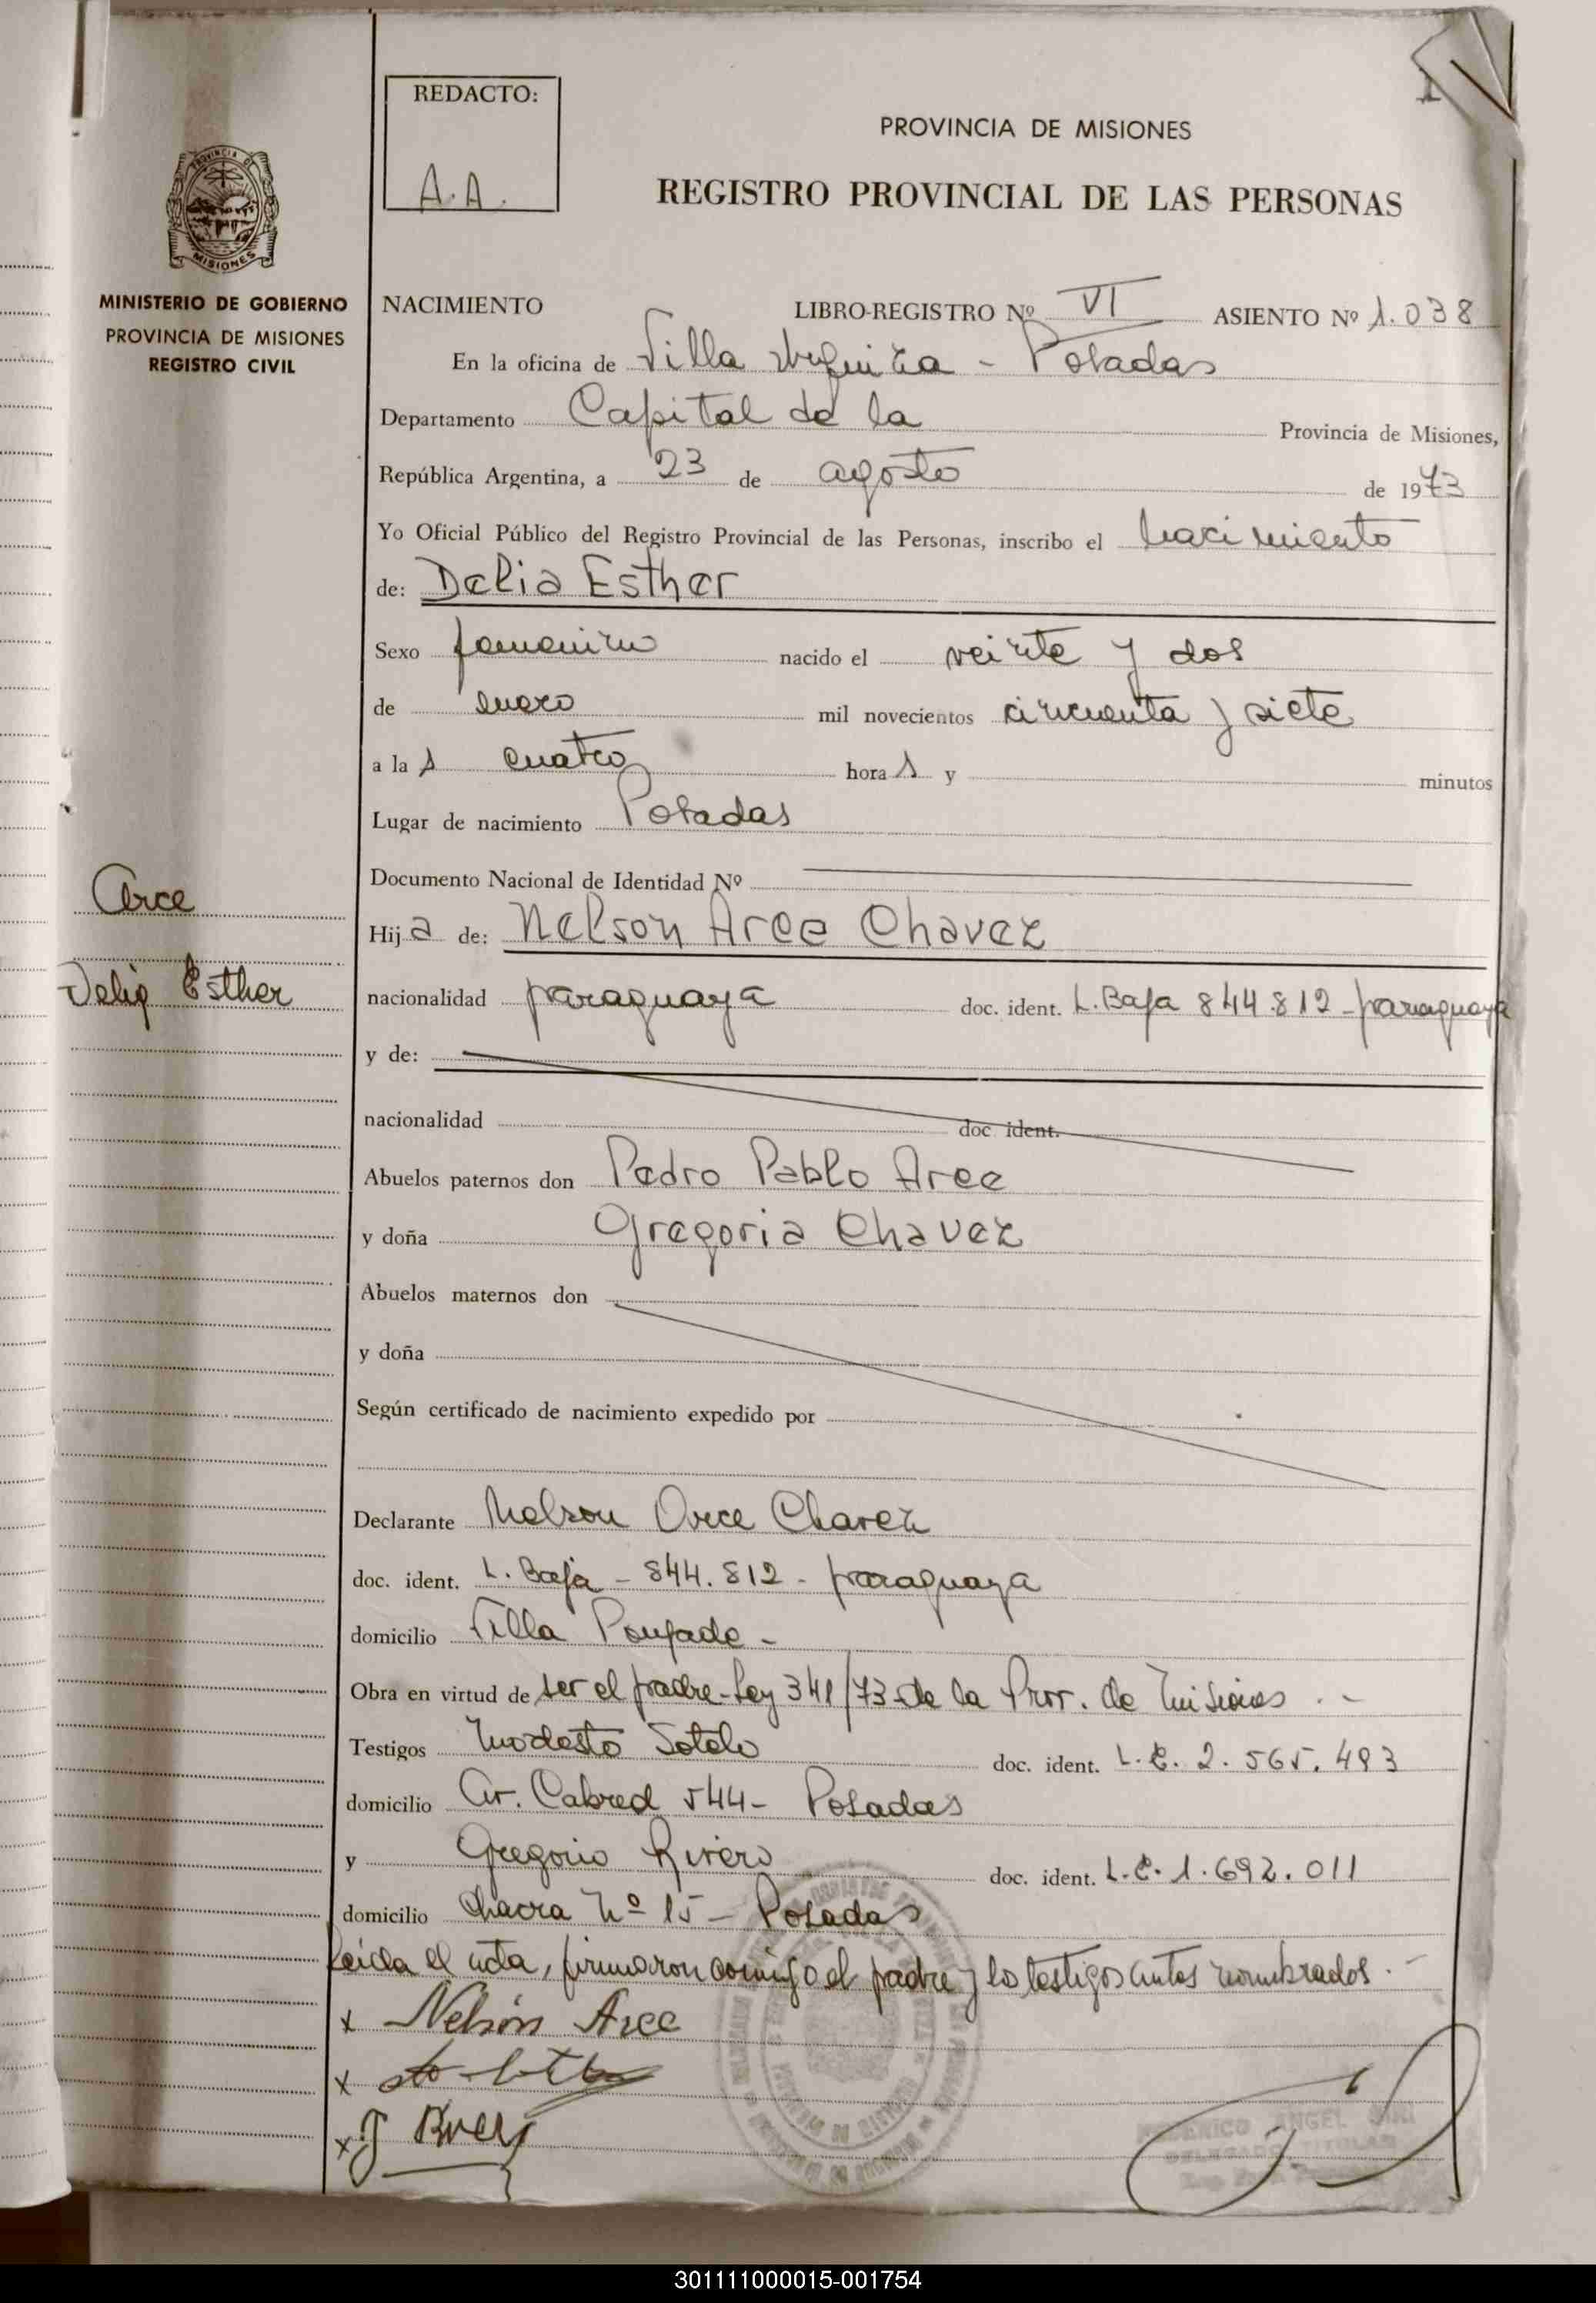 REDACTO:
A.A.
PROVINCIA DE MISIONES
REGISTRO PROVINCIAL DE LAS PERSONAS
PROVINCIA DE
MISIONES
MINISTERIO DE GOBIERNO
PROVINCIA DE MISIONES
REGISTRO CIVIL
NACIMIENTO LIBRO-REGISTRO Nº VI ASIENTO Nº 1.038
En la oficina de Villa Urquiza - Posadas
Departamento Capital de la Provincia de Misiones,
República Argentina, a 23 de agosto de 1973
Yo Oficial Público del Registro Provincial de las Personas, inscribo el nacimiento
de: Delia Esther
Sexo femenino nacido el veinte y dos
de enero mil novecientos cincuenta y siete
a la s cuatro hora s y minutos
Lugar de nacimiento Posadas
Documento Nacional de Identidad Nº
Arce
Hij a de: Nelson Arce Chavez
Delia Esther
nacionalidad paraguaya doc. ident. L. Baja 844.812 - paraguaya
y de:
nacionalidad doc. ident.
Abuelos paternos don Pedro Pablo Arce
y doña Gregoria Chavez
Abuelos maternos don
y doña
Según certificado de nacimiento expedido por
Declarante Nelson Arce Chavez
doc. ident. L. Baja - 844.812 - paraguaya
domicilio Villa Poujade -
Obra en virtud de ser el padre - Ley 341/73 - de la Prov. de Misiones . -
Testigos Modesto Sotelo doc. ident. L.E. 2.565.493
domicilio Av. Cabred 544 - Posadas
y Gregorio Rivero doc. ident. L.E. 1.692.011
domicilio Chacra Nº 15 - Posadas
Leida el acta, firmaron conmigo el padre y los testigos antes nombrados . -
x Nelson Arce
x
x
ANGEL
DELEGADO TITULAR
301111000015-001754